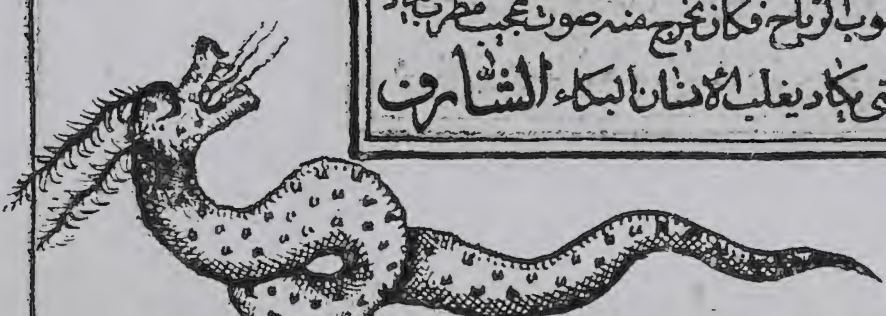 وب الرياح فكان يخرج منه صوت عجيب مطرب
تى يكاد يغلب الانسان البكاء الشارف